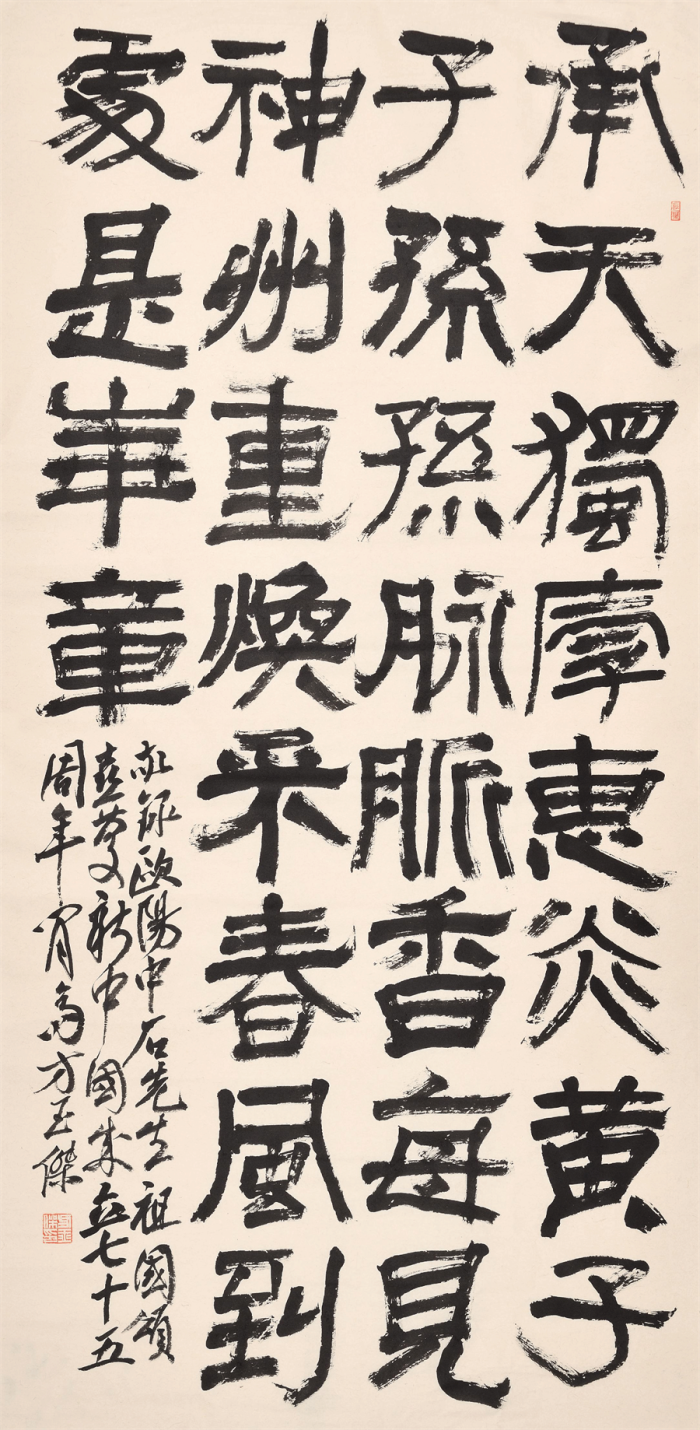 承天獨厚惠炎黃子
子孫孫脉脈香每見
神州重煥采春風到
處是華章
錄歐陽中石先生祖國頌
喜慶新中國成立七十五
周年方玉傑